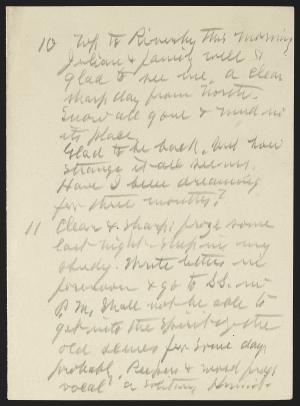 10 Up to Riverby this morning
Julian & family well &
glad to see me, a clear
sharp day from North.
Snow all gone & mud in
its place.
Glad to be back, but how
strange it all seems.
Have I been dreaming
for three months?
11 Clear & sharp; froze some
last night. Sleep in my
study. Write letters in
forenoon & go to S.S. in
P.M. Shall not be able to
get into the spirit of the
old scenes for some days
probably. Peepers & wood frogs
vocal a solitary